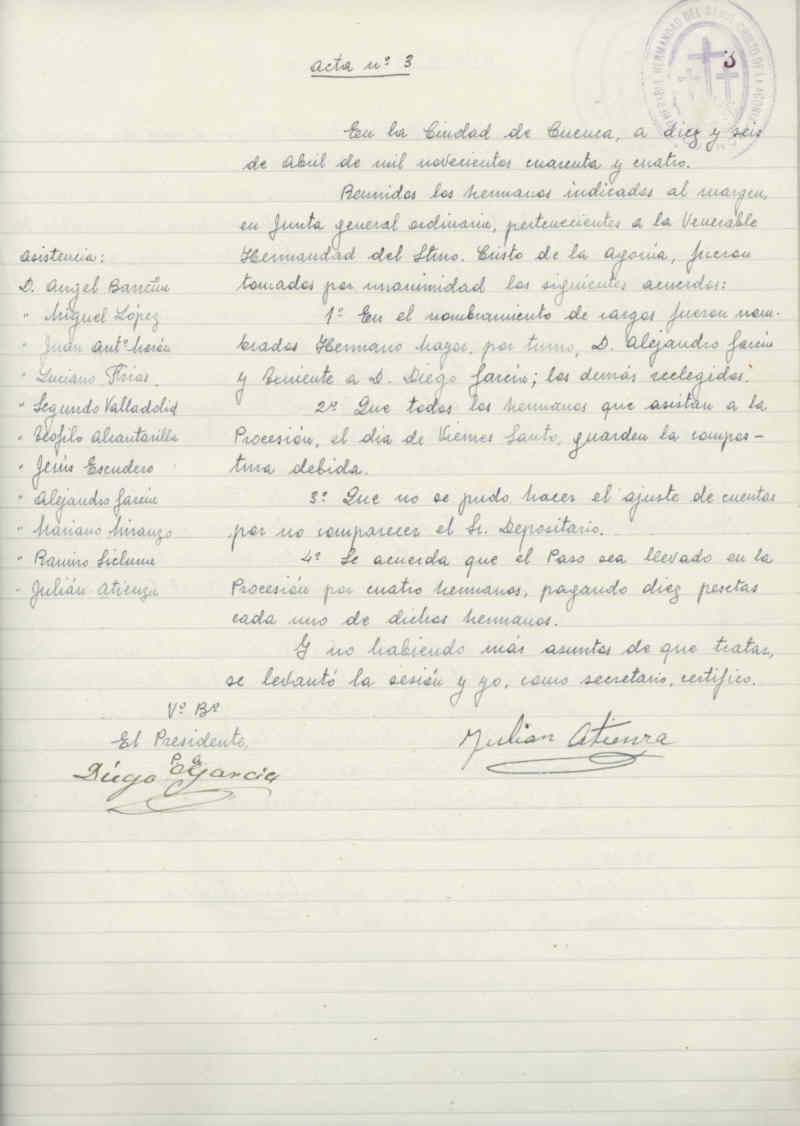 Acta nº 3
3
En la Ciudad de Cuenca, a diez y seis
de Abril de mil novecientos cuarenta y cuatro.
Reunidos los hermanos indicados al margen,
en Junta general ordinaria, pertenecientes a la Venerable
Hermandad del Stmo. Cristo de la Agonía, fueron
tomados por unanimidad los siguientes acuerdos:
1º En el nombramiento de cargos fueron nom-
brados Hermano Mayor, por turno, D. Alejandro García
y Teniente a D. Diego García; los demás reelegidos.
2º Que todos los hermanos que asistan a la
Procesión, el día de Viernes Santo, guarden la compos-
tura debida.
3º Que no se pudo hacer el ajuste de cuentas
por no comparecer el Sr. Depositario.
4º Se acuerda que el Paso sea llevado en la
Procesión por cuatro hermanos, pagando diez pesetas
cada uno de dichos hermanos.
Y no habiendo más asuntos de que tratar,
se levantó la sesión y yo, como secretario, certifico.
Asistencia:
D. Angel
" Miguel López
" Juan Antº Morón
" Luciano Frías
" Segundo Valladolid
" Teófilo Alcantarilla
" Jesús Escudero
" Alejandro García
" Mariano Miranzo
" Ramiro
" Julián Atienza
Vº Bº
El Presidente,
P.A.
Diego García
Julian Atienza